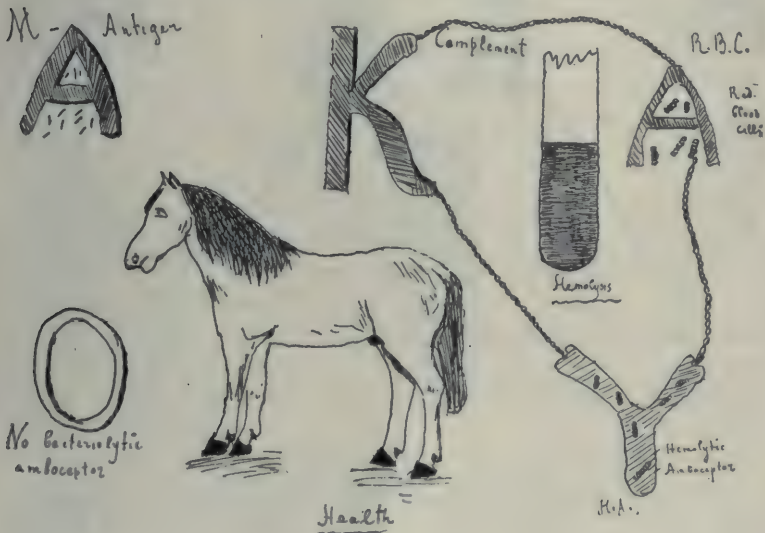 M - Antigen
Complement
R.B.C.
Red
blood
cells
Hemolysis
No bacteriolytic
amboceptor
Hemolytic
Amboceptor
H.A.
Health